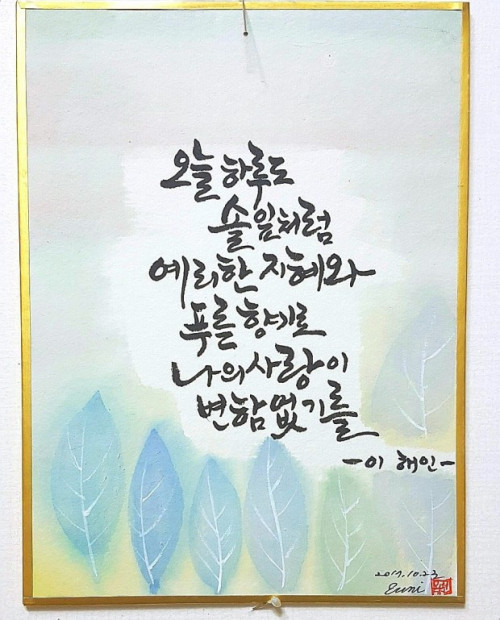 오늘 하루도
솔잎처럼
예리한 지혜와
푸른 향기로
나의 사랑이
변함 없기를
-이 해인-
2017.10.23
Euni